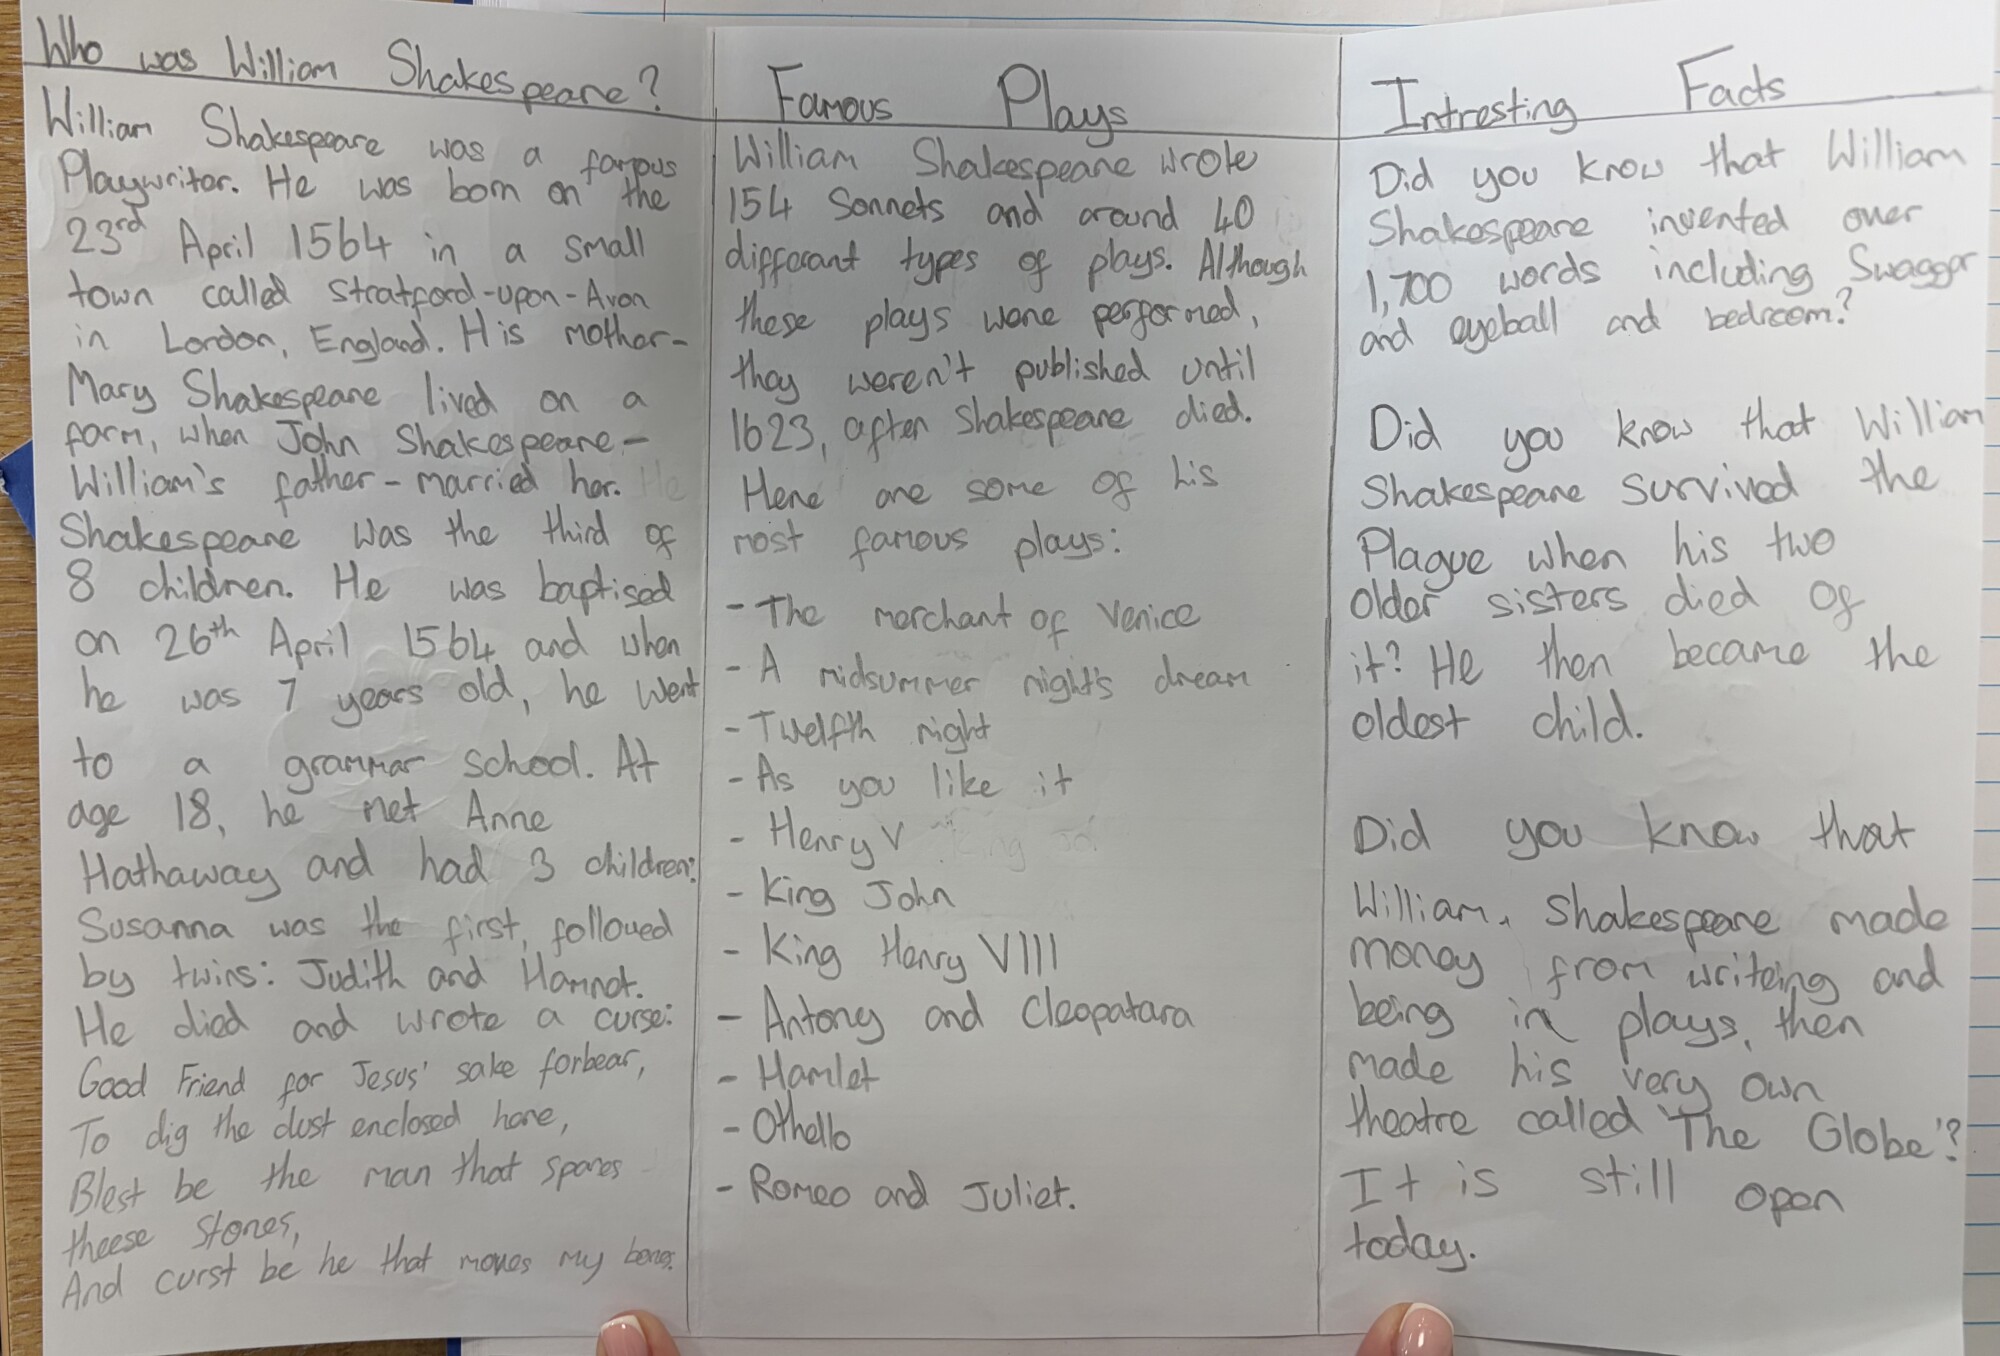 Who was William Shakespeare?
William Shakespeare was a famous
Playwritor. He was born on the
23rd April 1564 in a small
town called Stratford-upon-Avon
in London, England. His mother-
Mary Shakespeare lived on a
farm, when John Shakespeare-
William's father-married her. He
Shakespeare was the third of
8 children. He was baptised
on 26th April 1564 and when
he was 7 years old, he went
to a grammar school. At
age 18, he met Anne
Hathaway and had 3 children:
Susanna was the first, followed
by twins: Judith and Hamnet.
He died and wrote a curse:
Good Friend for Jesus' sake forbear,
To dig the dust enclosed here,
Blest be the man that spares
theese stones,
And curst be he that moves my bones.
Famous Plays
William Shakespeare wrote
154 Sonnets and around 40
differant types of plays. Although
these plays were performed,
they weren't published until
1623, after Shakespeare died.
Here are some of his
most famous plays:
- The merchant of Venice
- A midsummer night's dream
- Twelfth night
- As you like it
- Henry V
- King John
- King Henry VIII
- Antony and Cleopatara
- Hamlet
- Othello
- Romeo and Juliet.
Intresting Facts
Did you know that William
Shakespeare invented over
1,700 words including Swagger
and eyeball and bedroom?
Did you know that William
Shakespeare survived the
Plague when his two
older sisters died of
it? He then became the
oldest child.
Did you know that
William Shakespeare made
money from writeing and
being in plays, then
made his very own
theatre called 'The Globe'?
It is still open
today.